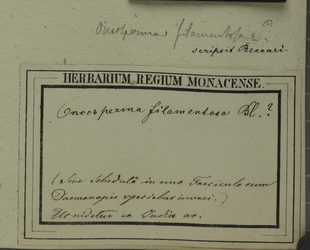 Oncosperma filamentosa?
scripsit Beccari.
HERBARIUM REGIUM MONACENSE.
Oncosperma filamentosa Bl.?
(Sine schedulâ in uno fasciculo cum
Daemonorops speciebus inveni.)
Ut videtur ex India or.